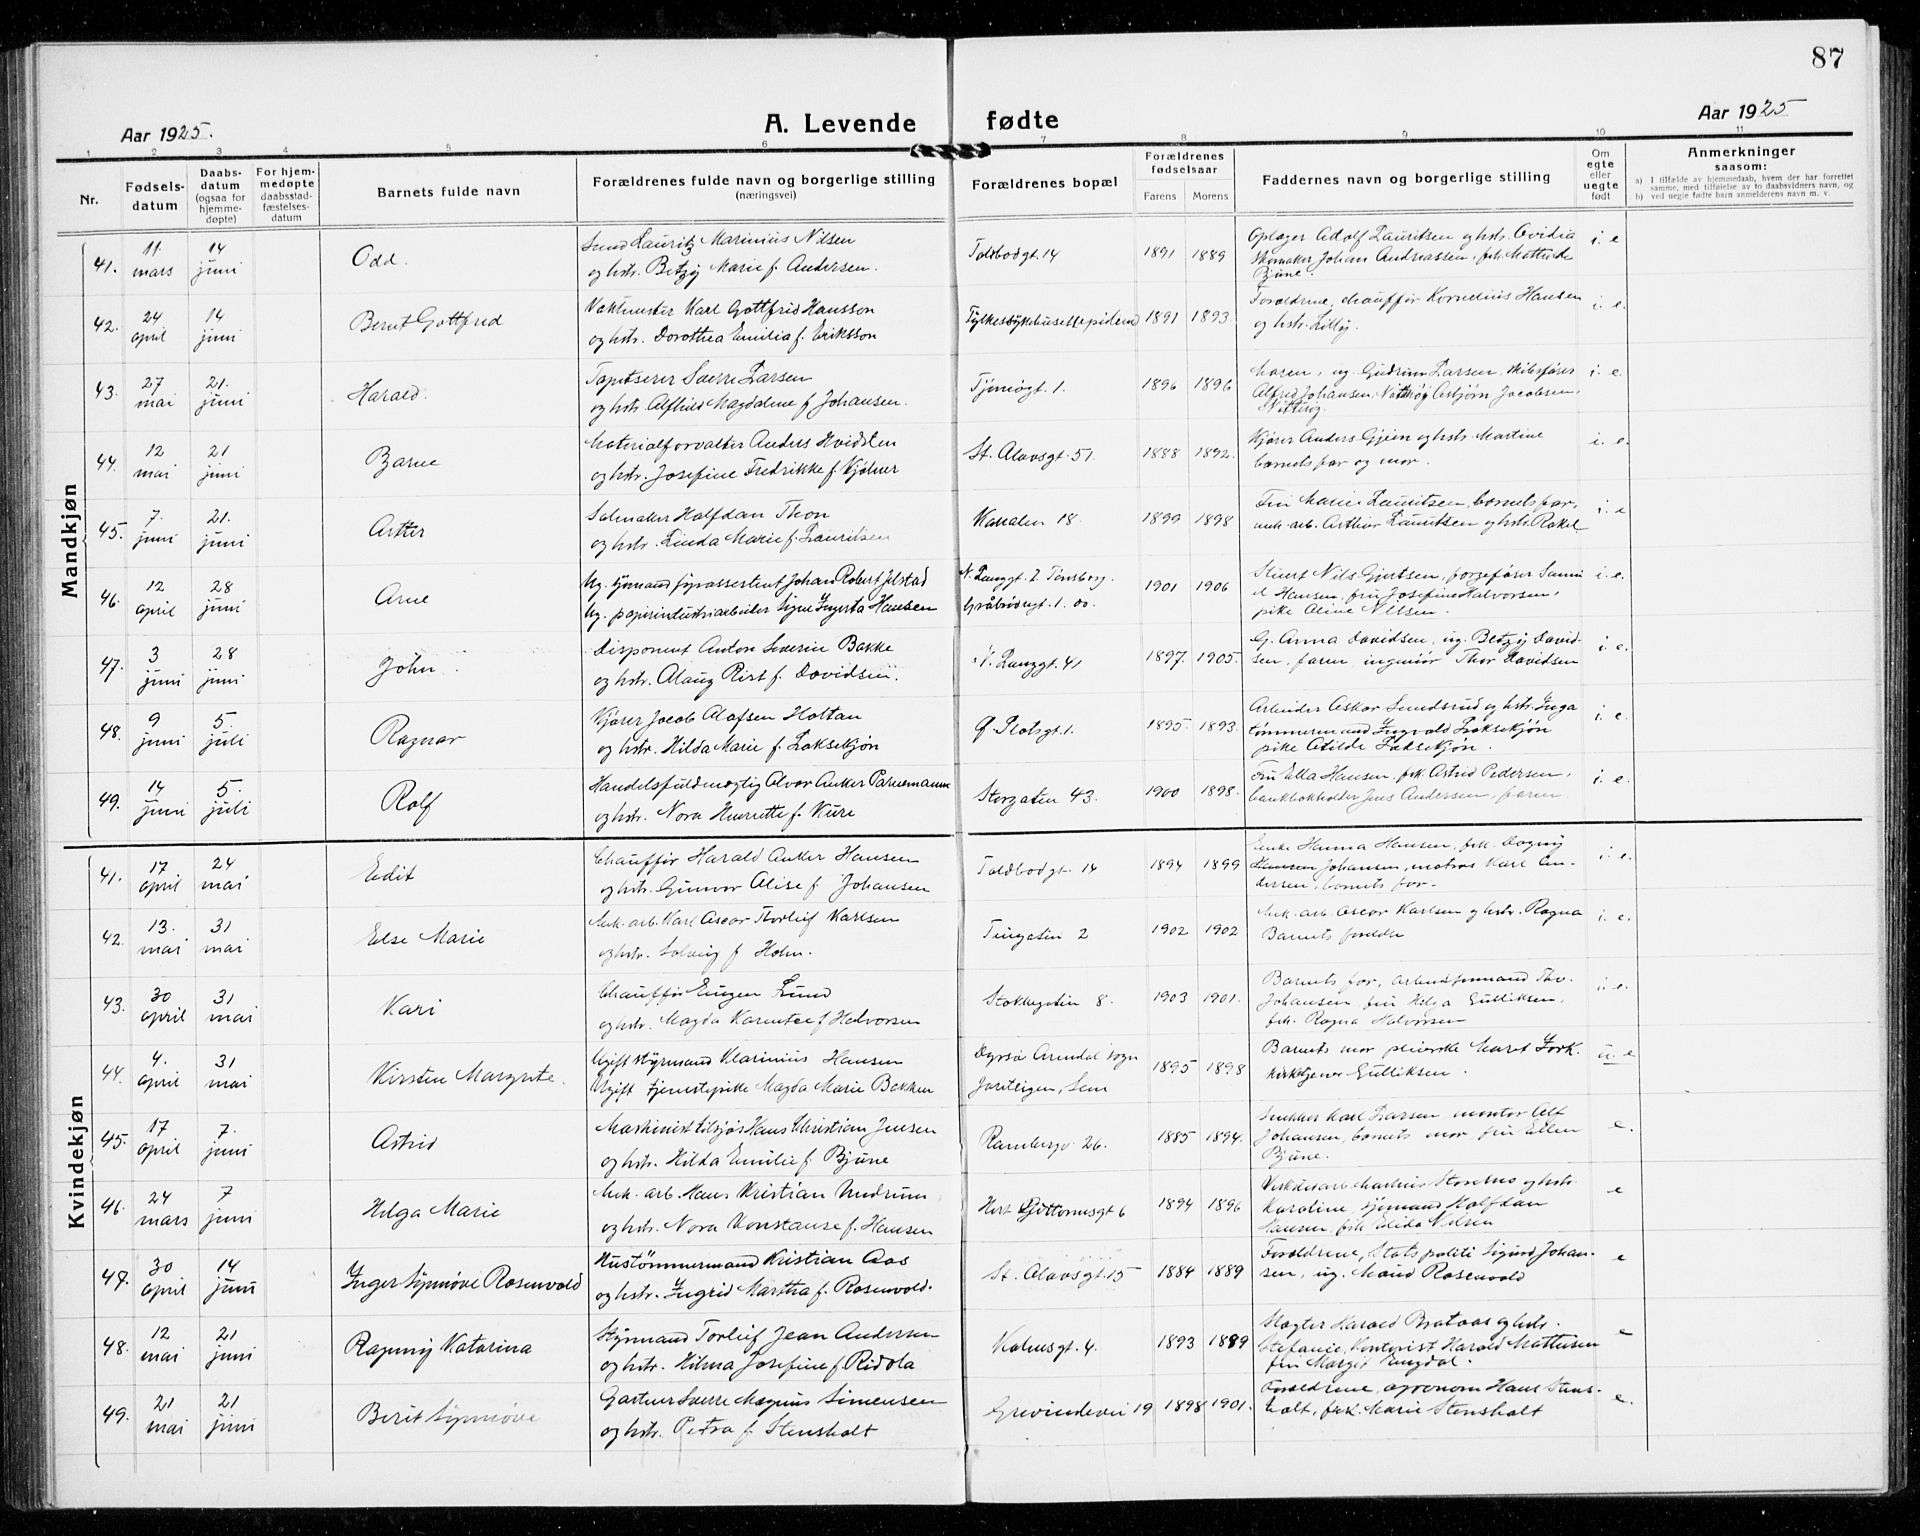 87
Aar 1925.
A. Levende fødte
Aar 1925
1 2 3 4 5 6 7 8 9 10 11
Nr.
Fødsels-
datum
Daabs-
datum
(ogsaa for
hjemme-
døpte)
For hjem-
medøpte
daabsstad-
fæstelses-
datum
Barnets fulde navn
Forældrenes fulde navn og borgerlige stilling
(næringsvei)
Forældrenes bopæl
Forældrenes
fødselsaar
Farens Morens
Faddernes navn og borgerlige stilling
Om
egte
eller
uegte
født
Anmerkninger
saasom:
a) I tilfælde av hjemmedaab, hvem der har forrettet
samme, med tilføielse av to daabsvidners navn, og
b) ved uegte fødte barn anmelderens navn m. v.
Mandkjøn
41. 11 mars 14 juni Odd. Lauritz Marinius Nilsen
og hstr. Betzy Marie f. Andersen. Toldbodgt. 14 1891 1889 Oplager Adolf Lauritsen og hstr. Ovidia
Skomaker Johan Andreassen, frk. Mathilde
Bjune. i. e
42. 24 april 14 juni Bernt Gottfrid Vaktmester Karl Gottfrid Hansson
og hstr. Dorothea Emilia f. Eriksson 1891 1893. Forældrene, chauffør Kornelius Hansen
og hstr. Lilly. i. e.
43. 27 mai 21. juni Harald. Tapetserer Sverre Larsen
og hstr. Alfhild Magdalene f. Johansen. Tjømøgt. 1. 1896 1896 Moren, ug. Gudrun Larsen, skibsfører
Alfred Johansen, Nøtterøy Asbjørn Jacobsen,
Nøtterøy. i. e.
44. 12 mai 21 juni Barne Materialforvalter Anders Hvidsten
og hstr. Josefine Fredrikke f. Kjølner St. Olavsgt. 51. 1888 1892. Kjører Anders Gjein og hstr. Martine
barnets far og mor. i. e.
45. 7. juni 21. juni Arther Salmaker Halfdan Thon
og hstr. Linda Marie f. Lauritsen Kanalen 18. 1899 1898 Fru Marie Lauritsen, barnets far,
mek. arb. Arthur Lauritsen og hstr. Rakel i. e
46. 12 april 28 juni Arne Ug. fyrassistent Johan Robert Jelstad
Ug. papirindustriarbeider Signe Ingerta Hansen N. Langgt. Z Tønsberg.
Gråbrødregt. 1. do. 1901 1906 Stuert Nils Gjertsen, Hansen, fru Josefine Halvorsen,
pike Aline Nilsen. i. e.
47. 3 juni 28 juni John Disponent Anton Severin Bakke
og hstr. Olaug Rist f. Davidsen. N. Langgt. 41 1897. 1905. G. Anna Davidsen, ug. Betzy David-
sen, faren, ingeniør Thor Davidsen i. e.
48. 9 juni 5. juli Ragnar Kjører Jacob Olafsen Holtan
og hstr. Hilda Marie f. Laksekjøn Q. Plotsgt. 1. 1895. 1893. Arbeider Oskar Sundsrud og hstr. Inga
tømmermand Ingvald Laksekjøn
pike Otilde Laksekjøn. i. e.
49. 14 juni 5. juli Rolf Handelsfuldmægtig Alvar Anker Parnemann
og hstr. Nora Henriette f. Kure Storgaten 43. 1900 1898. Fru Ella Hansen, frk. Astrid Pedersen,
bankbokholder Jens Andersen, faren i. e.
Kvindekjøn
41. 17 april 24 mai Edit Chauffør Harald Anker Hansen
og hstr. Gunvor Alise f. Johansen Toldbodgt. 14 1894 1899 Enke Hanna Hansen, frk. Dagny
Hansen Johansen, matros Karl An-
dersen, barnets far. i. e.
42. 13. mai 31 mai Else Marie Mek. arb. Karl Oscar Thorleif Karlsen
og hstr. Solveig f. Holm. Tingaten 2 1902 1902 Mek. arb. Oscar Karlsen og hstr. Ragna
Barnets foreldre i. e.
43. 30 april 31 mai Kari Chauffør Eugen Lund
og hstr. Magda Karentee f. Halvorsen Stokkegaten 8. 1903 1901. Barnets far, arbeidsformand Thv.
Johansen, fru Helga Gulliksen,
frk. Ragna Halvorsen i. e.
44. 4. april 31 mai Kirsten Margrete. Ugift styrmand Klarinius Hansen
Ugift tjenestepike Magda Marie Bakken Dyrsö Arendal sogn
Jarteigen, Sem 1895 1898 Barnets mor pleierske Maret Fork.
kirketjener Gulliksen. u. e
45. 17 april 7. juni Astrid Maskinist tilsjøs Hans Christian Jensen
og hstr. Hilda Emilie f. Bjune Rambergv. 26. 1885 1894. Snekker Karl Larsen, montør Alf
Johansen, barnets mor, fru Ellen
Bjune. e.
46. 24 mars 7 juni Helga Marie Mek. arb. Hans Kristian Undrum
og hstr. Nora Konstanse f. Hansen Hert Guttormsgt 6 1894 1896 og hstr.
Karoline, sjømand Halfdan
Hansen, frk. Elida Nilsen e
47. 30 april 14 juni Inger Synnøve Rosenvold Hustömmermand Kristian Aas
og hstr. Ingrid Martha f. Rosenvold. St. Olavsgt. 15 1884 1889 Forældrene, Statspoliti Sigurd Johan-
sen, ug. Maud Rosenvold e
48. 12 mai 21 juni Ragnvig Katarina Styrmand Torleif Jean Andersen
og hstr. Hilma Josefine f. Ridola Kalnesgt. 4. 1893 1889 Slagter Harald Brataas og hstr.
Stefanie, Kontorist Harald Mathisen
fru Margit Engdal. e
49. 21 mai 21 juni Berit Synnøve Gartner Sverre Magnus Simensen
og hstr. Petra f. Stensholt Grevindevei 19 1898 1901. Forældrene, agronom Hans Stens-
holt, frk. Marie Stensholt e.